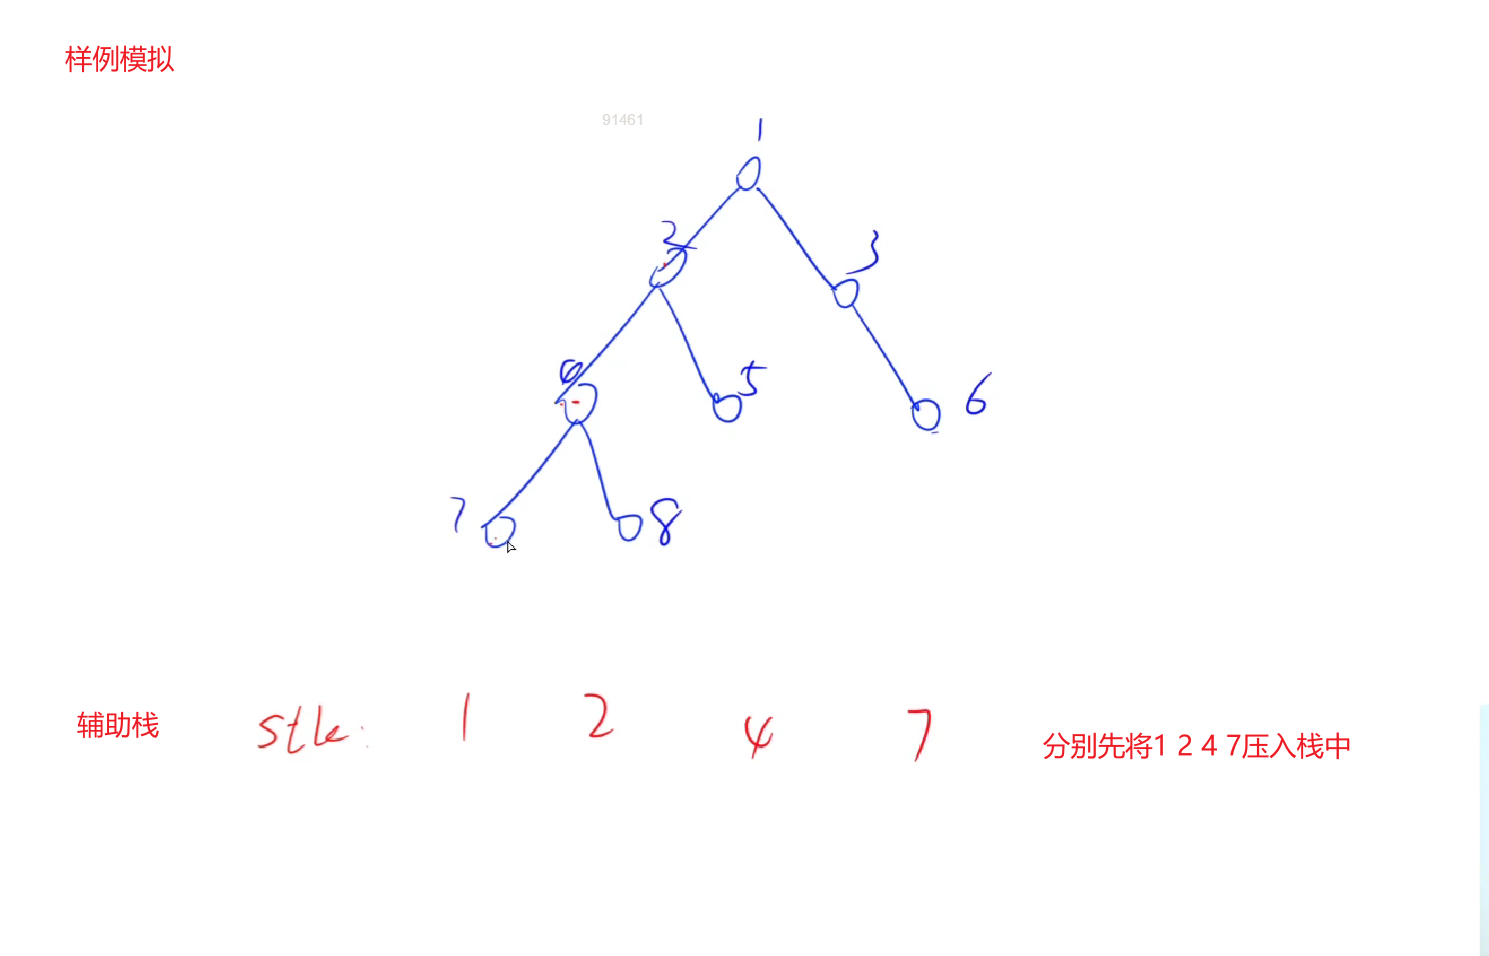 样例模拟
91461
1
2
3
5
6
7
8
辅助栈
stk: 1 2 4 7
分别先将1 2 4 7压入栈中